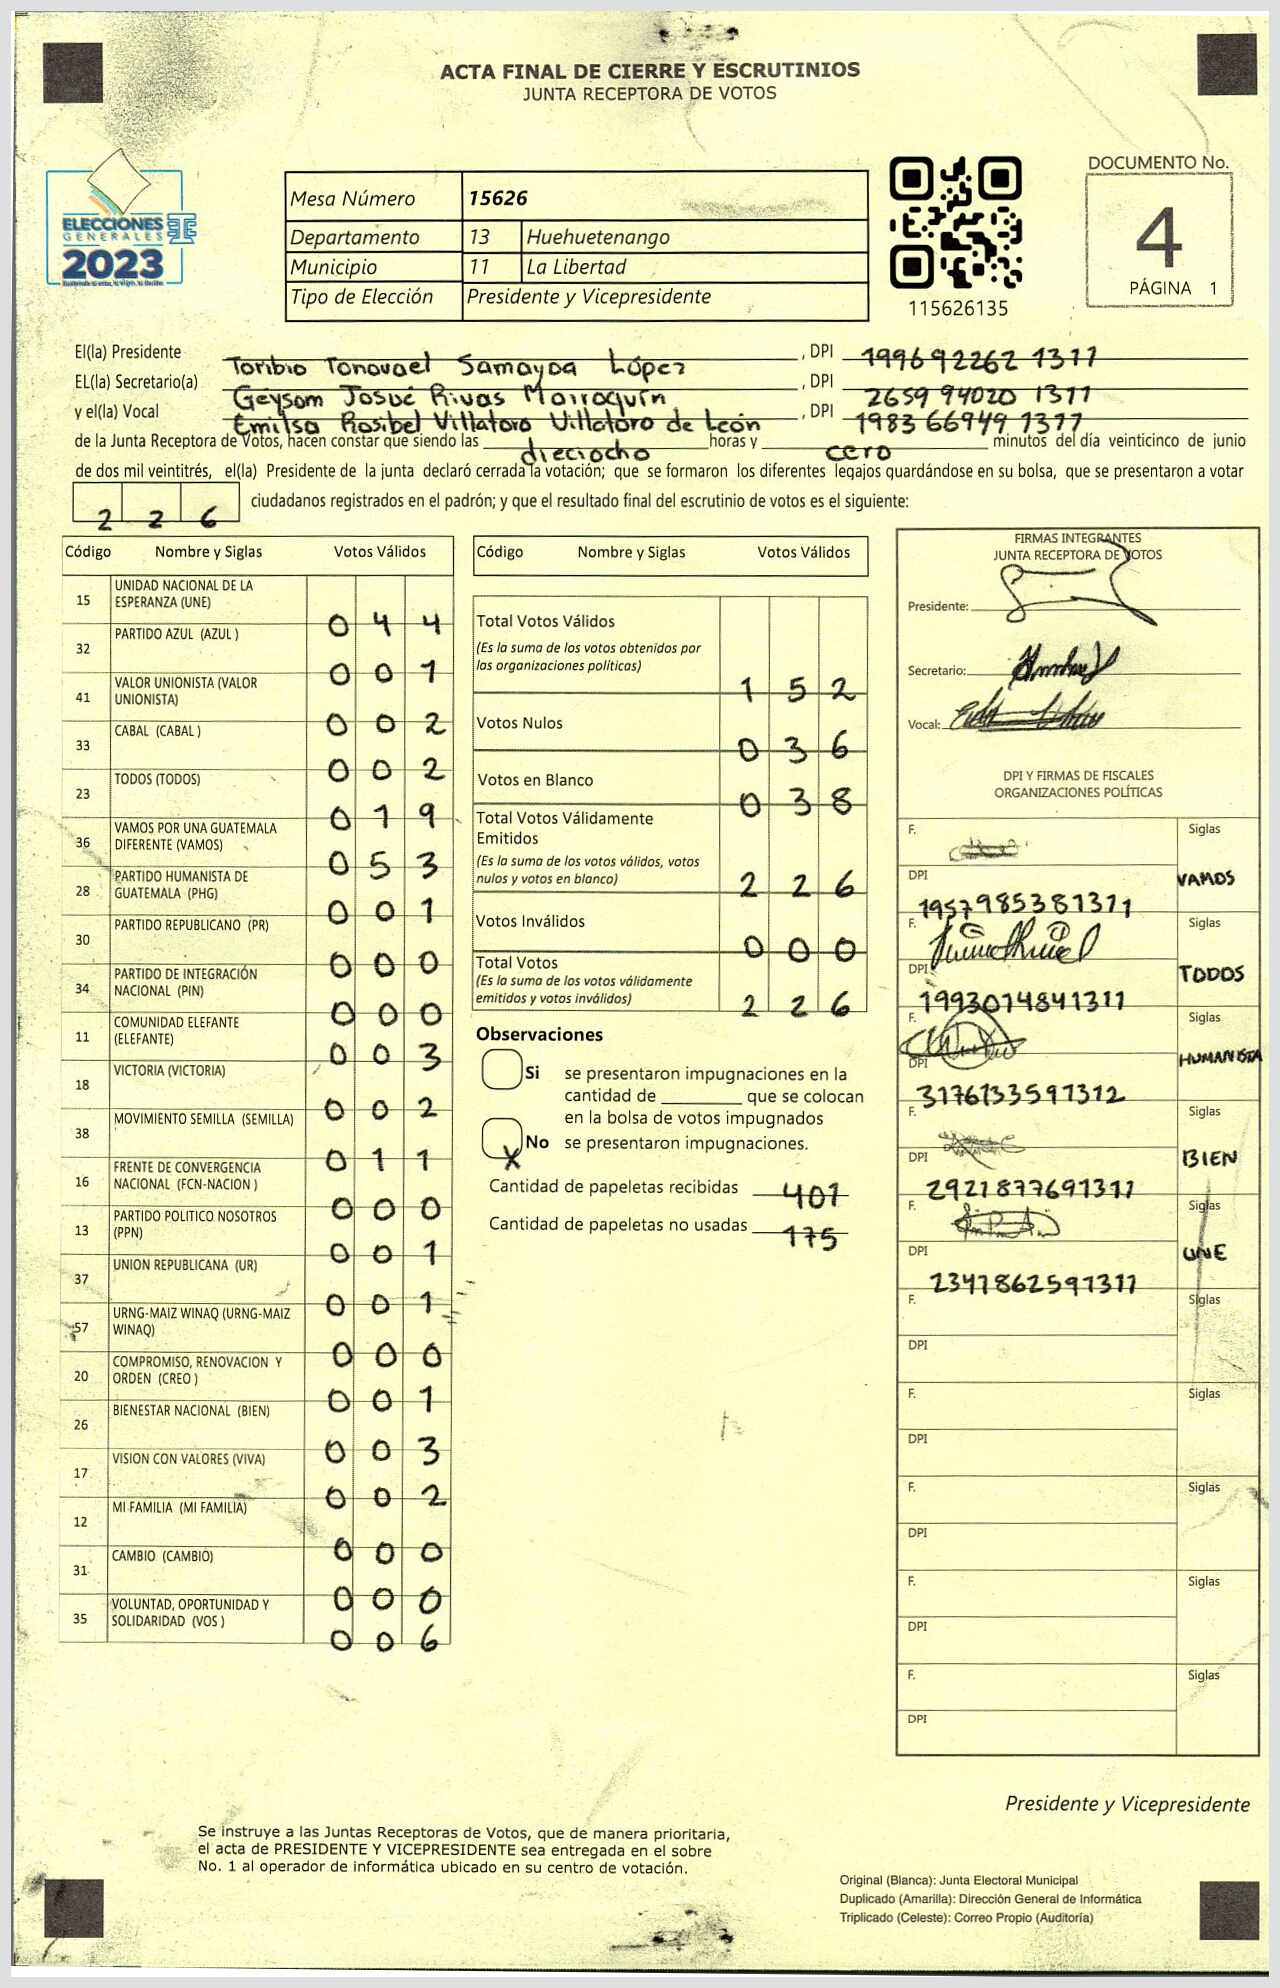 ACTA FINAL DE CIERRE Y ESCRUTINIOS
JUNTA RECEPTORA DE VOTOS
ELECCIONES
GENERALES
2023
Mesa Número 15626
Departamento 13 Huehuetenango
Municipio 11 La Libertad
Tipo de Elección Presidente y Vicepresidente
115626135
DOCUMENTO No.
4
PÁGINA 1
El(la) Presidente Toribio Tonovael Samayoa López, DPI 199692262 1311
EL(la) Secretario(a) Geysom Josué Rivas Marroquín, DPI 2659 94020 1311
y el(la) Vocal Emilsa Rosibel Villatoro Villatoro de León, DPI 1983 66949 1311
de la Junta Receptora de Votos, hacen constar que siendo las dieciocho horas y cero minutos del día veinticinco de junio
de dos mil veintitrés, el(la) Presidente de la junta declaró cerrada la votación; que se formaron los diferentes legajos quardándose en su bolsa, que se presentaron a votar
2 2 6 ciudadanos registrados en el padrón; y que el resultado final del escrutinio de votos es el siguiente:
Código Nombre y Siglas Votos Válidos
15 UNIDAD NACIONAL DE LA ESPERANZA (UNE) 0 4 4
32 PARTIDO AZUL (AZUL ) 0 0 1
41 VALOR UNIONISTA (VALOR UNIONISTA) 0 0 2
33 CABAL (CABAL ) 0 0 2
23 TODOS (TODOS) 0 1 9
36 VAMOS POR UNA GUATEMALA DIFERENTE (VAMOS) 0 5 3
28 PARTIDO HUMANISTA DE GUATEMALA (PHG) 0 0 1
30 PARTIDO REPUBLICANO (PR) 0 0 0
34 PARTIDO DE INTEGRACIÓN NACIONAL (PIN) 0 0 0
11 COMUNIDAD ELEFANTE (ELEFANTE) 0 0 3
18 VICTORIA (VICTORIA) 0 0 2
38 MOVIMIENTO SEMILLA (SEMILLA) 0 1 1
16 FRENTE DE CONVERGENCIA NACIONAL (FCN-NACION ) 0 0 0
13 PARTIDO POLITICO NOSOTROS (PPN) 0 0 1
37 UNION REPUBLICANA (UR) 0 0 1
57 URNG-MAIZ WINAQ (URNG-MAIZ WINAQ) 0 0 0
20 COMPROMISO, RENOVACION Y ORDEN (CREO ) 0 0 1
26 BIENESTAR NACIONAL (BIEN) 0 0 3
17 VISION CON VALORES (VIVA) 0 0 2
12 MI FAMILIA (MI FAMILIA) 0 0 0
31 CAMBIO (CAMBIO) 0 0 0
35 VOLUNTAD, OPORTUNIDAD Y SOLIDARIDAD (VOS ) 0 0 6
Código Nombre y Siglas Votos Válidos
Total Votos Válidos
(Es la suma de los votos obtenidos por
las organizaciones políticas) 1 5 2
Votos Nulos 0 3 6
Votos en Blanco 0 3 8
Total Votos Válidamente
Emitidos
(Es la suma de los votos válidos, votos
nulos y votos en blanco) 2 2 6
Votos Inválidos 0 0 0
Total Votos
(Es la suma de los votos válidamente
emitidos y votos inválidos) 2 2 6
Observaciones
Si se presentaron impugnaciones en la
cantidad de ________ que se colocan
en la bolsa de votos impugnados
X No se presentaron impugnaciones.
Cantidad de papeletas recibidas 401
Cantidad de papeletas no usadas 175
FIRMAS INTEGRANTES
JUNTA RECEPTORA DE VOTOS
Presidente:
Secretario:
Vocal:
DPI Y FIRMAS DE FISCALES
ORGANIZACIONES POLÍTICAS
F. Siglas
DPI VAMOS
1957985381311
F. Siglas
DPI TODOS
1993014841311
F. Siglas
DPI HUMANISTA
3176733591312
F. Siglas
DPI BIEN
2921877691311
F. Siglas
DPI UNE
2341862591311
F. Siglas
DPI
F. Siglas
DPI
F. Siglas
DPI
F. Siglas
DPI
F. Siglas
DPI
Presidente y Vicepresidente
Se instruye a las Juntas Receptoras de Votos, que de manera prioritaria,
el acta de PRESIDENTE Y VICEPRESIDENTE sea entregada en el sobre
No. 1 al operador de informática ubicado en su centro de votación.
Original (Blanca): Junta Electoral Municipal
Duplicado (Amarilla): Dirección General de Informática
Triplicado (Celeste): Correo Propio (Auditoría)